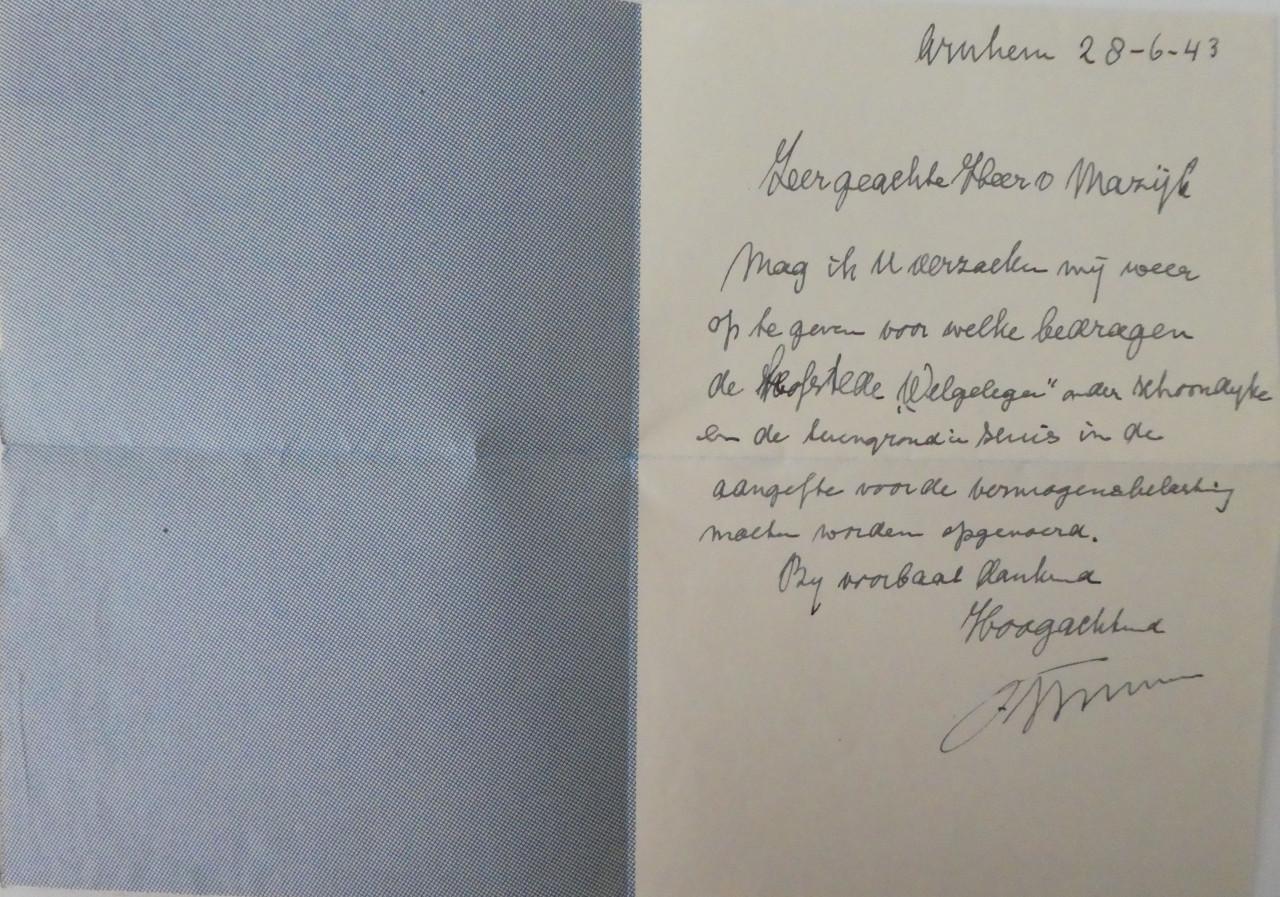 Arnhem 28-6-43
Zeergeachte Heer v Mazijk
Mag ik U verzoeken mij weer
op te geven voor welke bedragen
de Hofstede „Welgelegen" onder Schoondyke
en de tuingrond in Sluis in de
aangifte voor de vermogensbelasting
moeten worden opgevoerd.
By voorbaat dankend
Hoogachtend